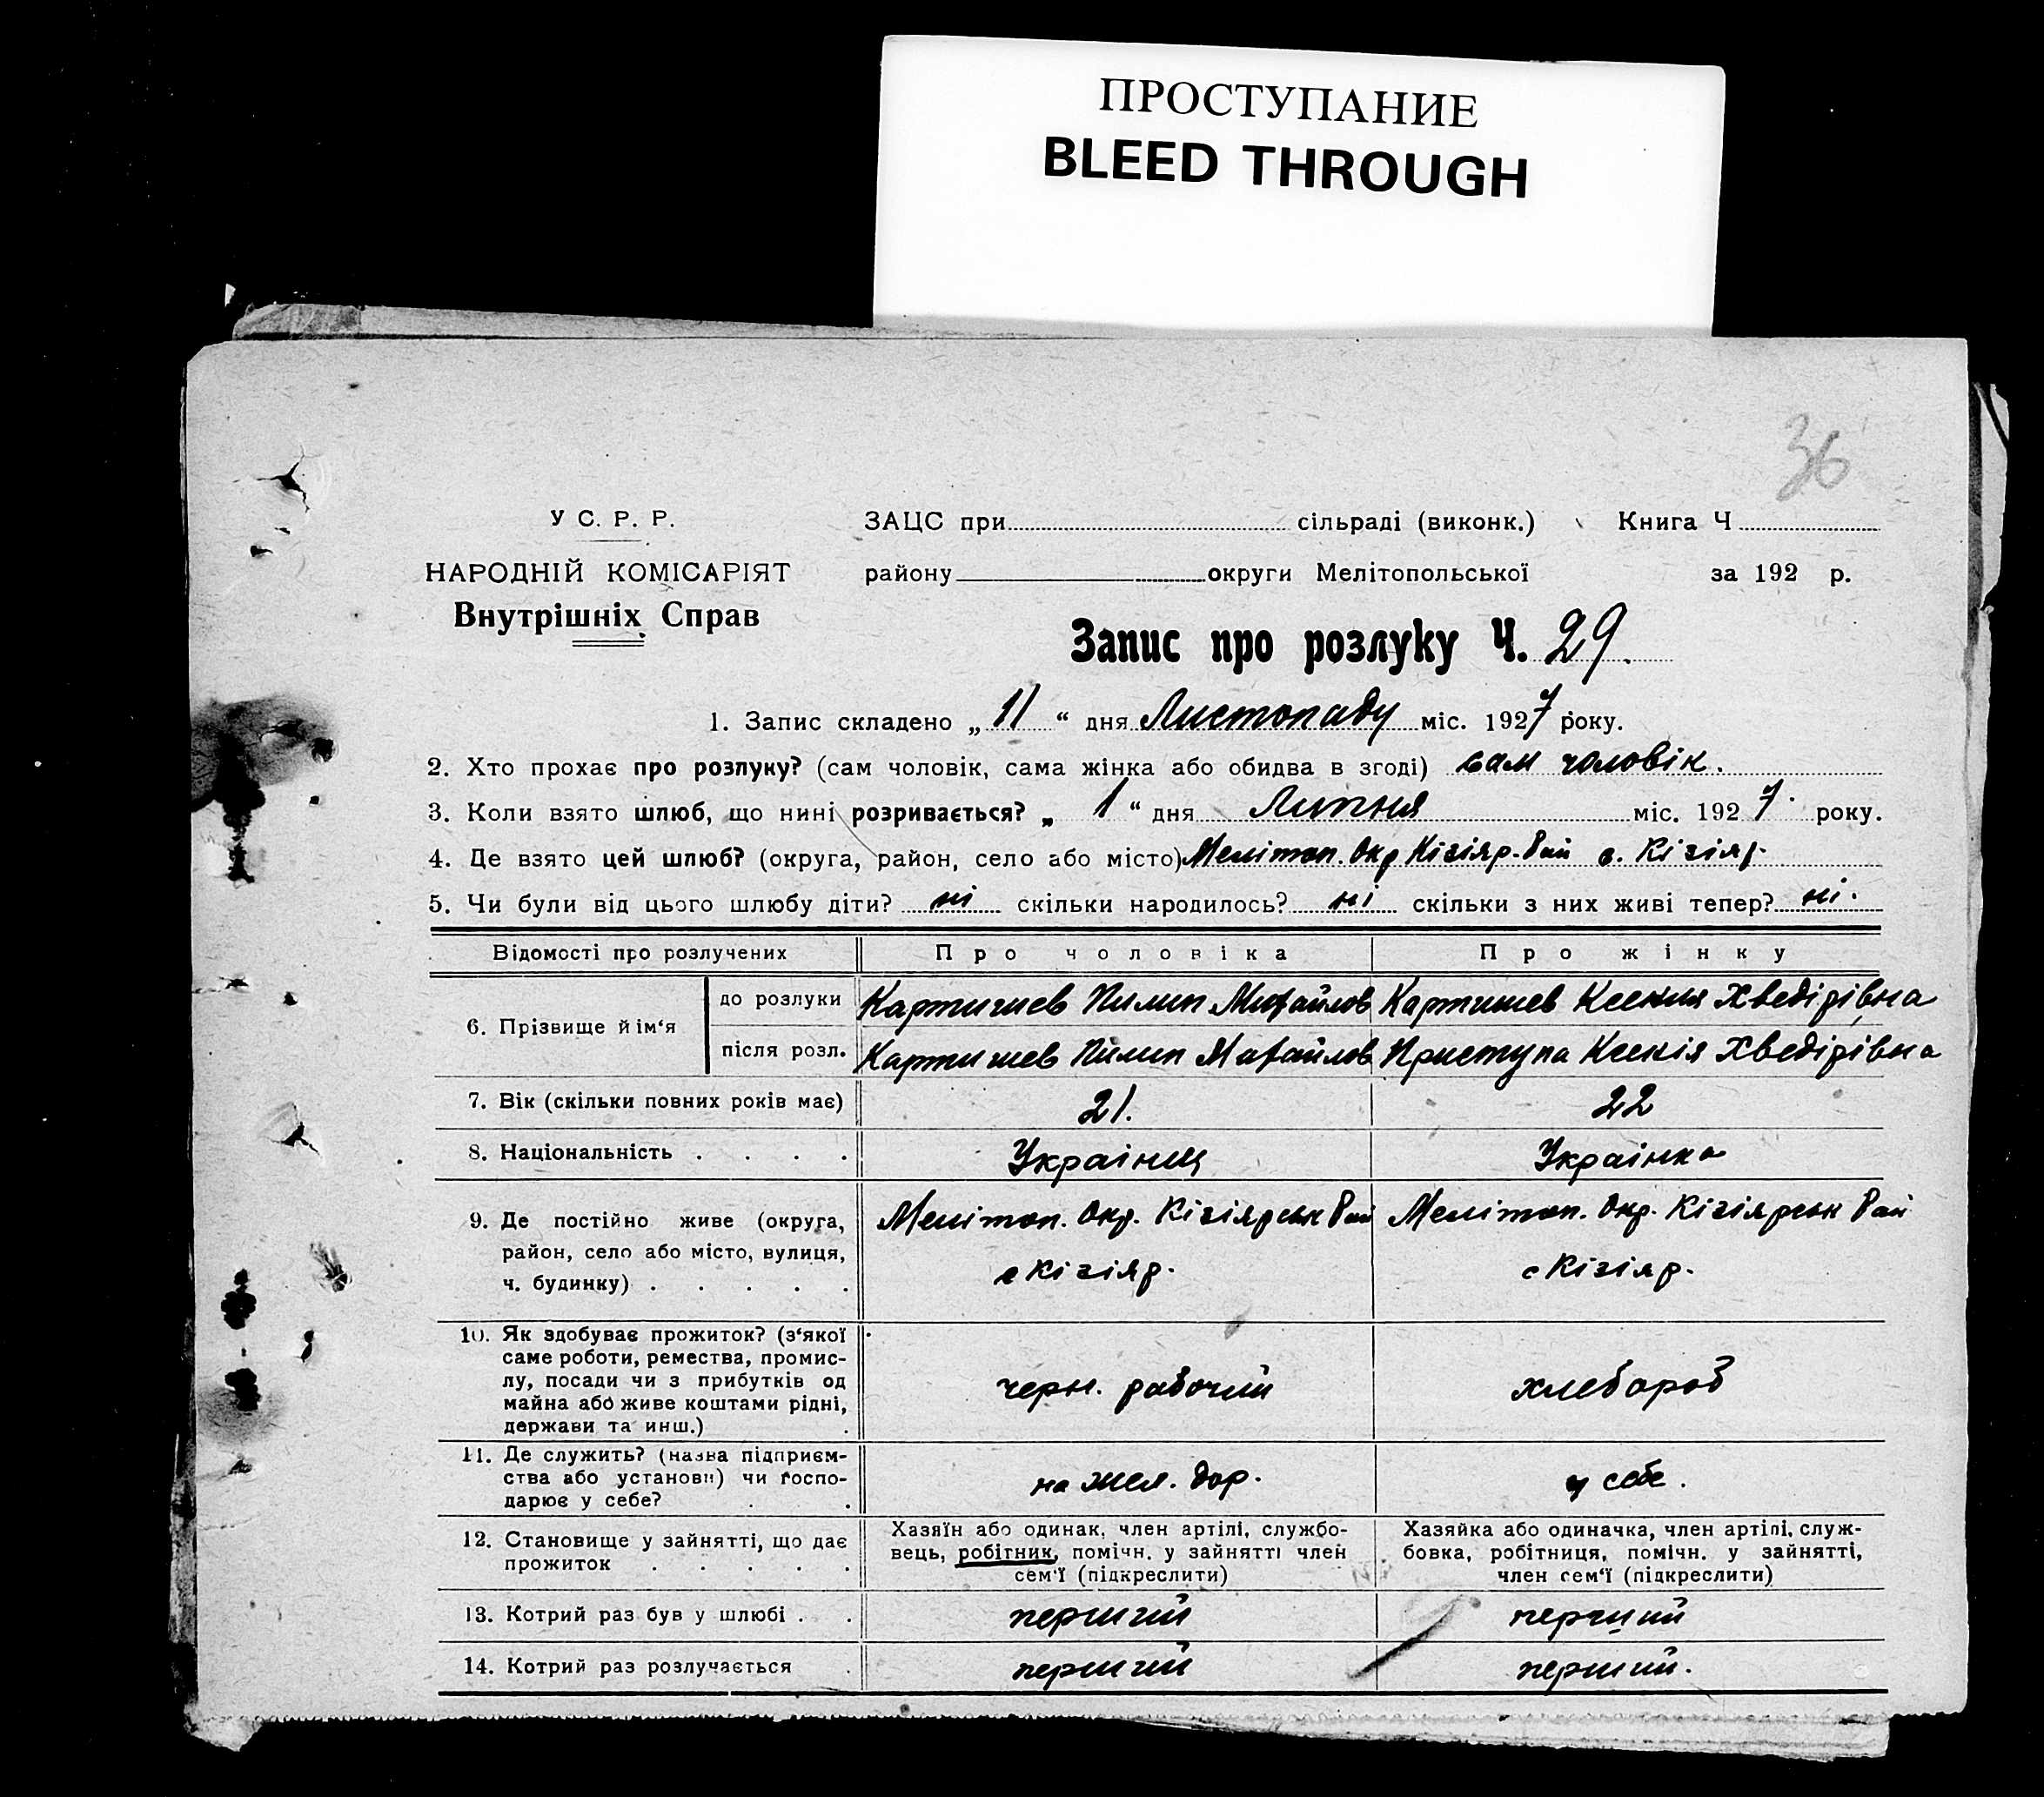 ПРОСТУПАНИЕ
BLEED THROUGH
36
У С. Р. Р.
НАРОДНІЙ КОМІСАРІЯТ
Внутрішніх Справ
ЗАЦС при сільраді (виконк.) Книга Ч
району округи Мелітопольської за 192 р.
Запис про розлуку Ч. 29.
1. Запис складено „ 11 “ дня Листопаду міс. 1927 року.
2. Хто прохає про розлуку? (сам чоловік, сама жінка або обидва в згоді) сам чоловік.
3. Коли взято шлюб, що нині розривається? „ 1 “ дня Липня міс. 1927 року.
4. Де взято цей шлюб? (округа, район, село або місто) Мелітоп. Окр Кізіяр. Рай с. Кізіяр.
5. Чи були від цього шлюбу діти? ні скільки народилось? ні скільки з них живі тепер? ні.
Відомості про розлучених Про чоловіка Про жінку
6. Прізвище й ім‘я
до розлуки Картишев Пилип Михайлов Картишев Ксения Хведірівна
після розл. Картишев Пилип Михайлов Приступа Ксенія Хведірівна
7. Вік (скільки повних років має) 21. 22
8. Національність . . . . Українец Українка
9. Де постійно живе (округа,
район, село або місто, вулиця,
ч. будинку) . . . . .
Мелітоп. Окр. Кізіярськ Рай
с Кізіяр.
Мелітоп. Окр. Кізіярськ Рай
с Кізіяр.
10. Як здобуває прожиток? (з‘якої
саме роботи, ремества, промис-
лу, посади чи з прибутків од
майна або живе коштами рідні,
держави та инш.) .
черн. рабочий
хлебороб
11. Де служить? (назва підприєм-
ства або установи) чи ґоспо-
дарює у себе? . .
на жел. дор.
у себе.
12. Становище у зайнятті, що дає
прожиток . . . . .
Хазяїн або одинак, член артілі, службо-
вець, робітник, помічн. у зайнятті член
сем‘ї (підкреслити)
Хазяйка або одиначка, член артілі, служ-
бовка, робітниця, помічн. у зайнятті,
член сем‘ї (підкреслити)
13. Котрий раз був у шлюбі . . перший перший
14. Котрий раз розлучається . перший перший.